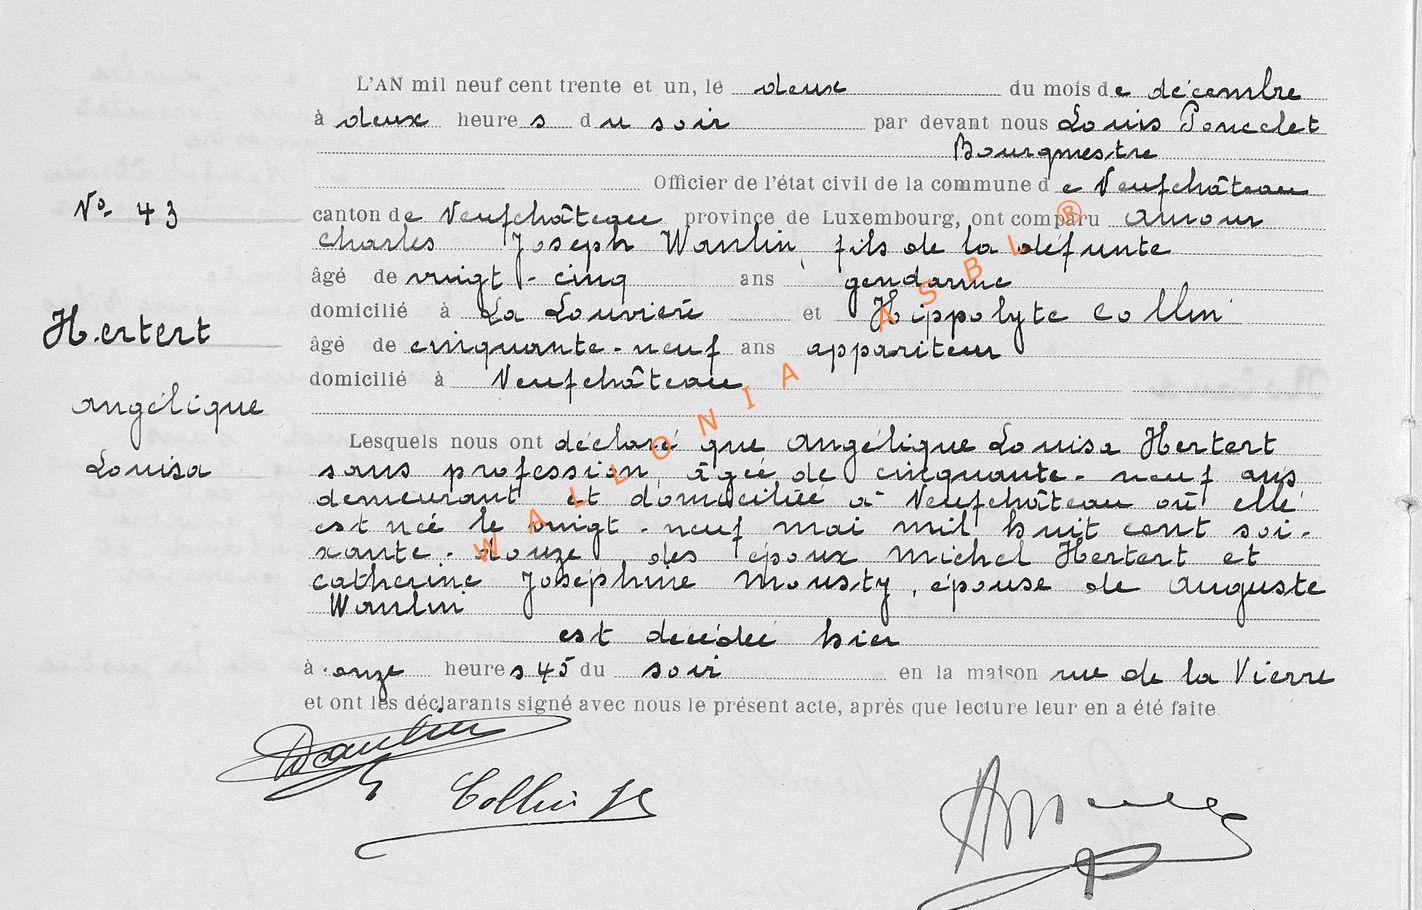 L'AN mil neuf cent trente et un, le deux du mois de décembre
à deux heures du soir par devant nous Louis Poncelet
Bourgmestre
Officier de l'état civil de la commune de Neufchâteau
No. 43
canton de Neufchâteau province de Luxembourg, ont comparu Amour
Charles Joseph Wanlin, fils de la défunte
âgé de vingt-cinq ans gendarme
domicilié à La Louvière et Hippolyte Collin
Hertert
âgé de cinquante-neuf ans appariteur
domicilié à Neufchâteau
Angélique
Louisa
Lesquels nous ont déclaré que Angélique Louisa Hertert
sans profession, âgée de cinquante-neuf ans
demeurant et domiciliée à Neufchâteau où elle
est née le vingt-neuf mai mil huit cent soi-
xante-douze des époux Michel Hertert et
Catherine Joséphine Mousty, épouse de Auguste
Wanlin
est décédée hier
à onze heures 45 du soir en la maison rue de la Vierre
et ont les déclarants signé avec nous le présent acte, après que lecture leur en a été faite.
Wanlin
Collin H
WALLONIA ASBL ®